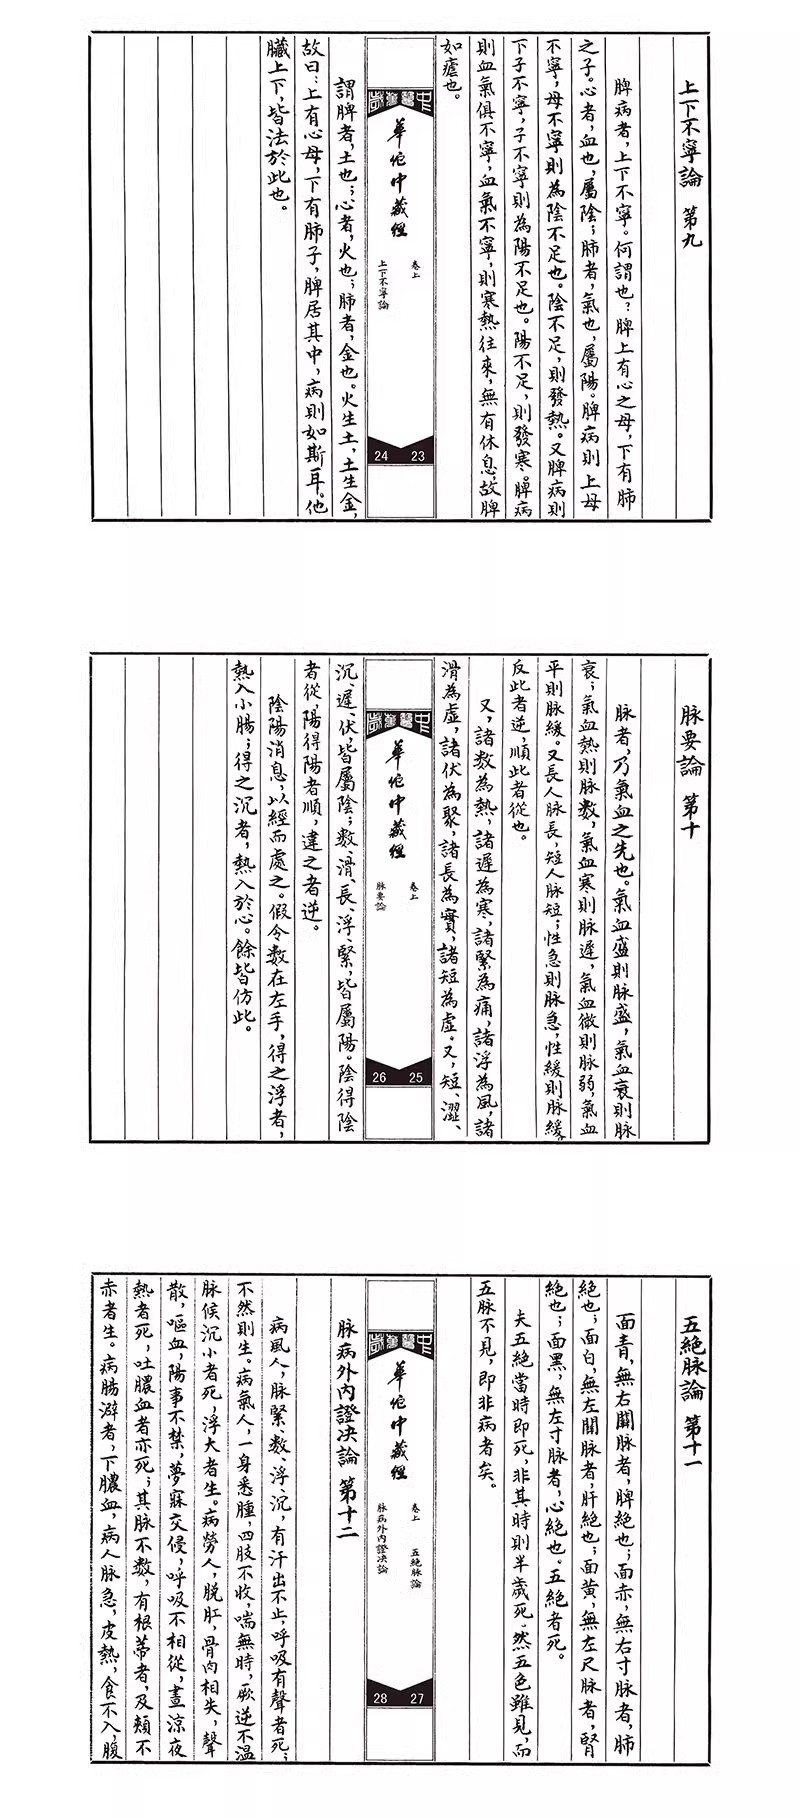 上下不寧論　第九
脾病者，上下不寧。何謂也？脾上有心之母，下有肺
之子。心者，血也，屬陰；肺者，氣也，屬陽。脾病則上母
不寧，母不寧則為陰不足也。陰不足，則發熱。又脾病則
下子不寧，子不寧則為陽不足也。陽不足，則發寒。脾病
則血氣俱不寧，血氣不寧，則寒熱往來，無有休息，故脾
如瘧也。
中醫舊誌
華佗中藏經
卷上
上下不寧論
24 23
謂脾者，土也；心者，火也；肺者，金也。火生土，土生金，
故曰：上有心母，下有肺子，脾居其中，病則如斯耳。他
臟上下，皆法於此也。
脉要論　第十
脉者，乃氣血之先也。氣血盛則脉盛，氣血衰則脉
衰；氣血熱則脉数，氣血寒則脉遲，氣血微則脉弱，氣血
平則脉緩。又長人脉長，短人脉短；性急則脉急，性緩則脉緩。
反此者逆，順此者從也。
又，諸数為熱，諸遲為寒，諸緊為痛，諸浮為風，諸
滑為虛，諸伏為聚，諸長為實，諸短為虛。又，短、澀、
華佗中藏經
卷上
脉要論
26 25
沉、遲、伏，皆屬陰；数、滑、長、浮、緊，皆屬陽。陰得陰
者從，陽得陽者順，違之者逆。
陰陽消息，以經而處之。假令数在左手，得之浮者，
熱入小腸；得之沉者，熱入於心。餘皆仿此。
五絕脉論　第十一
面青，無右關脉者，脾絕也；面赤，無右寸脉者，肺
絕也；面白，無左關脉者，肝絕也；面黃，無左尺脉者，腎
絕也；面黑，無左寸脉者，心絕也。五絕者死。
夫五絕當時即死，非其時則半歲死。然五色雖見，而
五脉不見，即非病者矣。
華佗中藏經
卷上　五絕脉論
脉病外內證决論
28 27
脉病外內證决論　第十二
病風人，脉緊、数、浮、沉，有汗出不止，呼吸有聲者死；
不然則生。病氣人，一身悉腫，四肢不收，喘無時，厥逆不温，
脉候沉小者死，浮大者生。病勞人，脱肛，骨肉相失，聲
散，嘔血，陽事不禁，夢寐交侵，呼吸不相從，晝涼夜
熱者死，吐膿血者亦死；其脉不数，有根蒂者，及頰不
赤者生。病腸澼者，下膿血，病人脉急，皮熱，食不入，腹